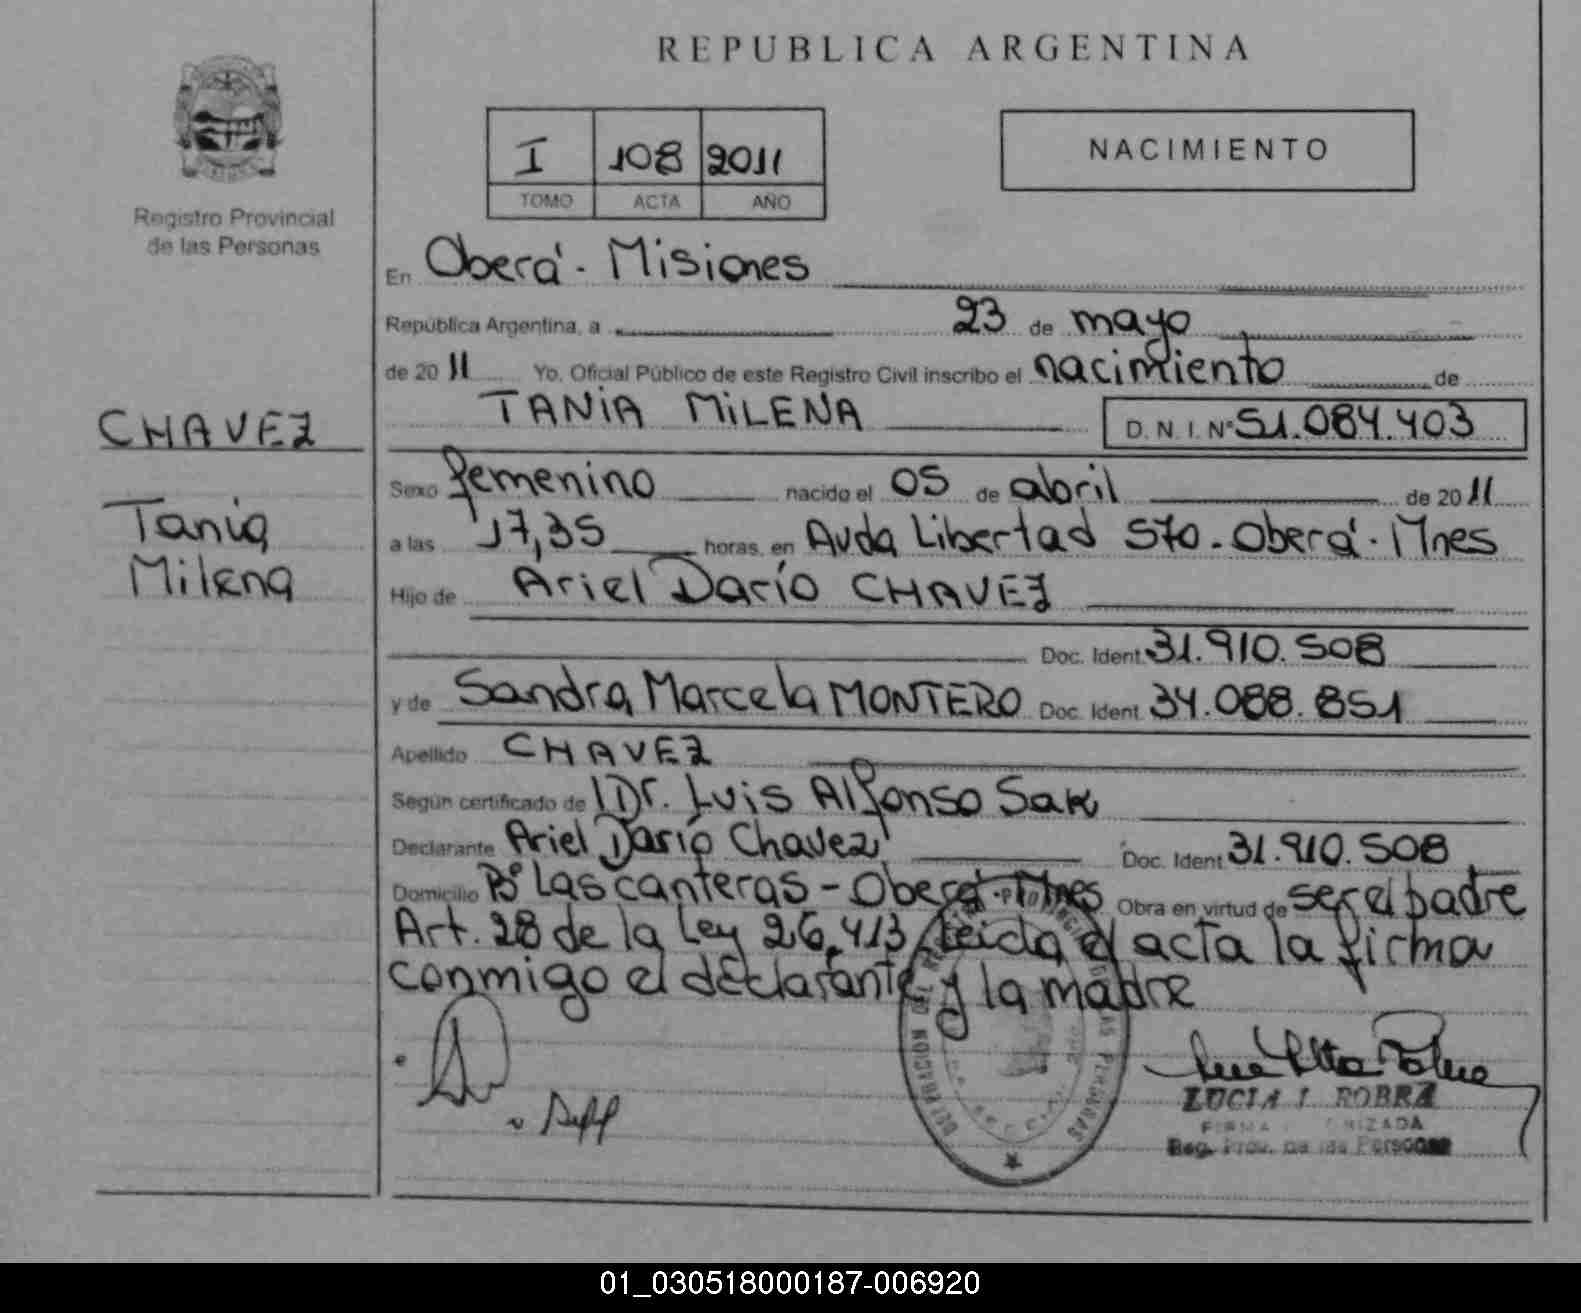 REPUBLICA ARGENTINA
I 108 2011
TOMO ACTA AÑO
NACIMIENTO
Registro Provincial
de las Personas
En Oberá - Misiones
República Argentina, a 23 de mayo
de 2011 Yo, Oficial Público de este Registro Civil inscribo el nacimiento de
TANIA MILENA D. N. I. Nº 51.084.403
CHAVEZ
Tania
Milena
Sexo femenino nacido el 05 de abril de 2011
a las 17,35 horas, en Avda Libertad S70 - Oberá - Mnes
Hijo de Ariel Darío CHAVEZ
Doc. Ident. 31.910.508
y de Sandra Marcela MONTERO Doc. Ident. 34.088.851
Apellido CHAVEZ
Según certificado de Dr. Luis Alfonso Sak
Declarante Ariel Darío Chavez Doc. Ident. 31.910.508
Domicilio Bº Las canteras - Oberá Mnes Obra en virtud de ser el padre
Art. 28 de la Ley 26.413 Leida el acta la firma
conmigo el declarante y la madre
LUCIA I. ROBRA
FIRMA
Reg. Prov. de las Personas
01_030518000187-006920